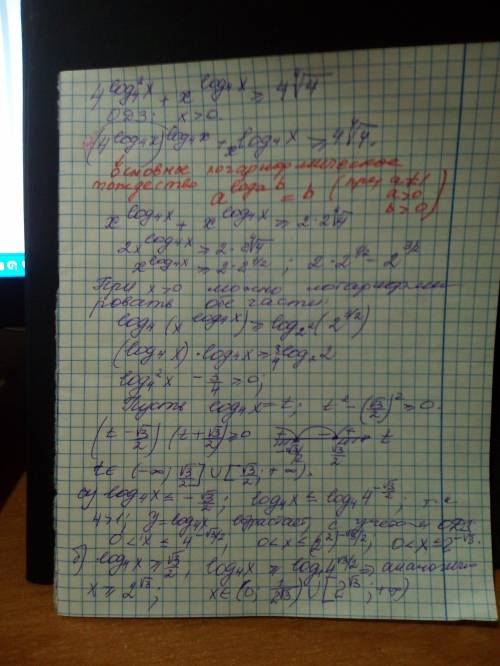 4^{log₄²x} + x^{log₄x} ≥ 4∜4
ОДЗ: x>0.
(4^{log₄x})^{log₄x} + x^{log₄x} ≥ 4∜4.
Основное логарифмическое
тождество a^{log_a b} = b (при a≠1
a>0
b>0)
x^{log₄x} + x^{log₄x} ≥ 2·2∜4
2x^{log₄x} ≥ 2·2∜4
x^{log₄x} ≥ 2·2^{1/2}; 2·2^{1/2} = 2^{3/2}
При x>0 можно логарифми-
ровать обе части
log₄(x^{log₄x}) ≥ log_{2²}(2^{3/2})
(log₄x)·log₄x ≥ 3/4 log₂2
log₄²x - 3/4 ≥ 0;
Пусть log₄x = t; t² - (√3/2)² ≥ 0.
(t - √3/2)(t + √3/2) ≥ 0 + - + -√3/2 √3/2 t
t ∈ (-∞; √3/2] ∪ [√3/2; +∞).
а) log₄x ≤ -√3/2; log₄x ≤ log₄4^{-√3/2}; т.к
4>1; y=log₄x возрастает, с учетом ОДЗ
0<x≤4^{-√3/2}; 0<x≤(2²)^{-√3/2}; 0<x≤2^{-√3}.
б) log₄x ≥ √3/2, log₄x ≥ log₄4^{√3/2} ⇒ аналогично
x ≥ 2^{√3}; x∈(0; 1/2^{√3}) ∪ [2^{√3}; +∞)